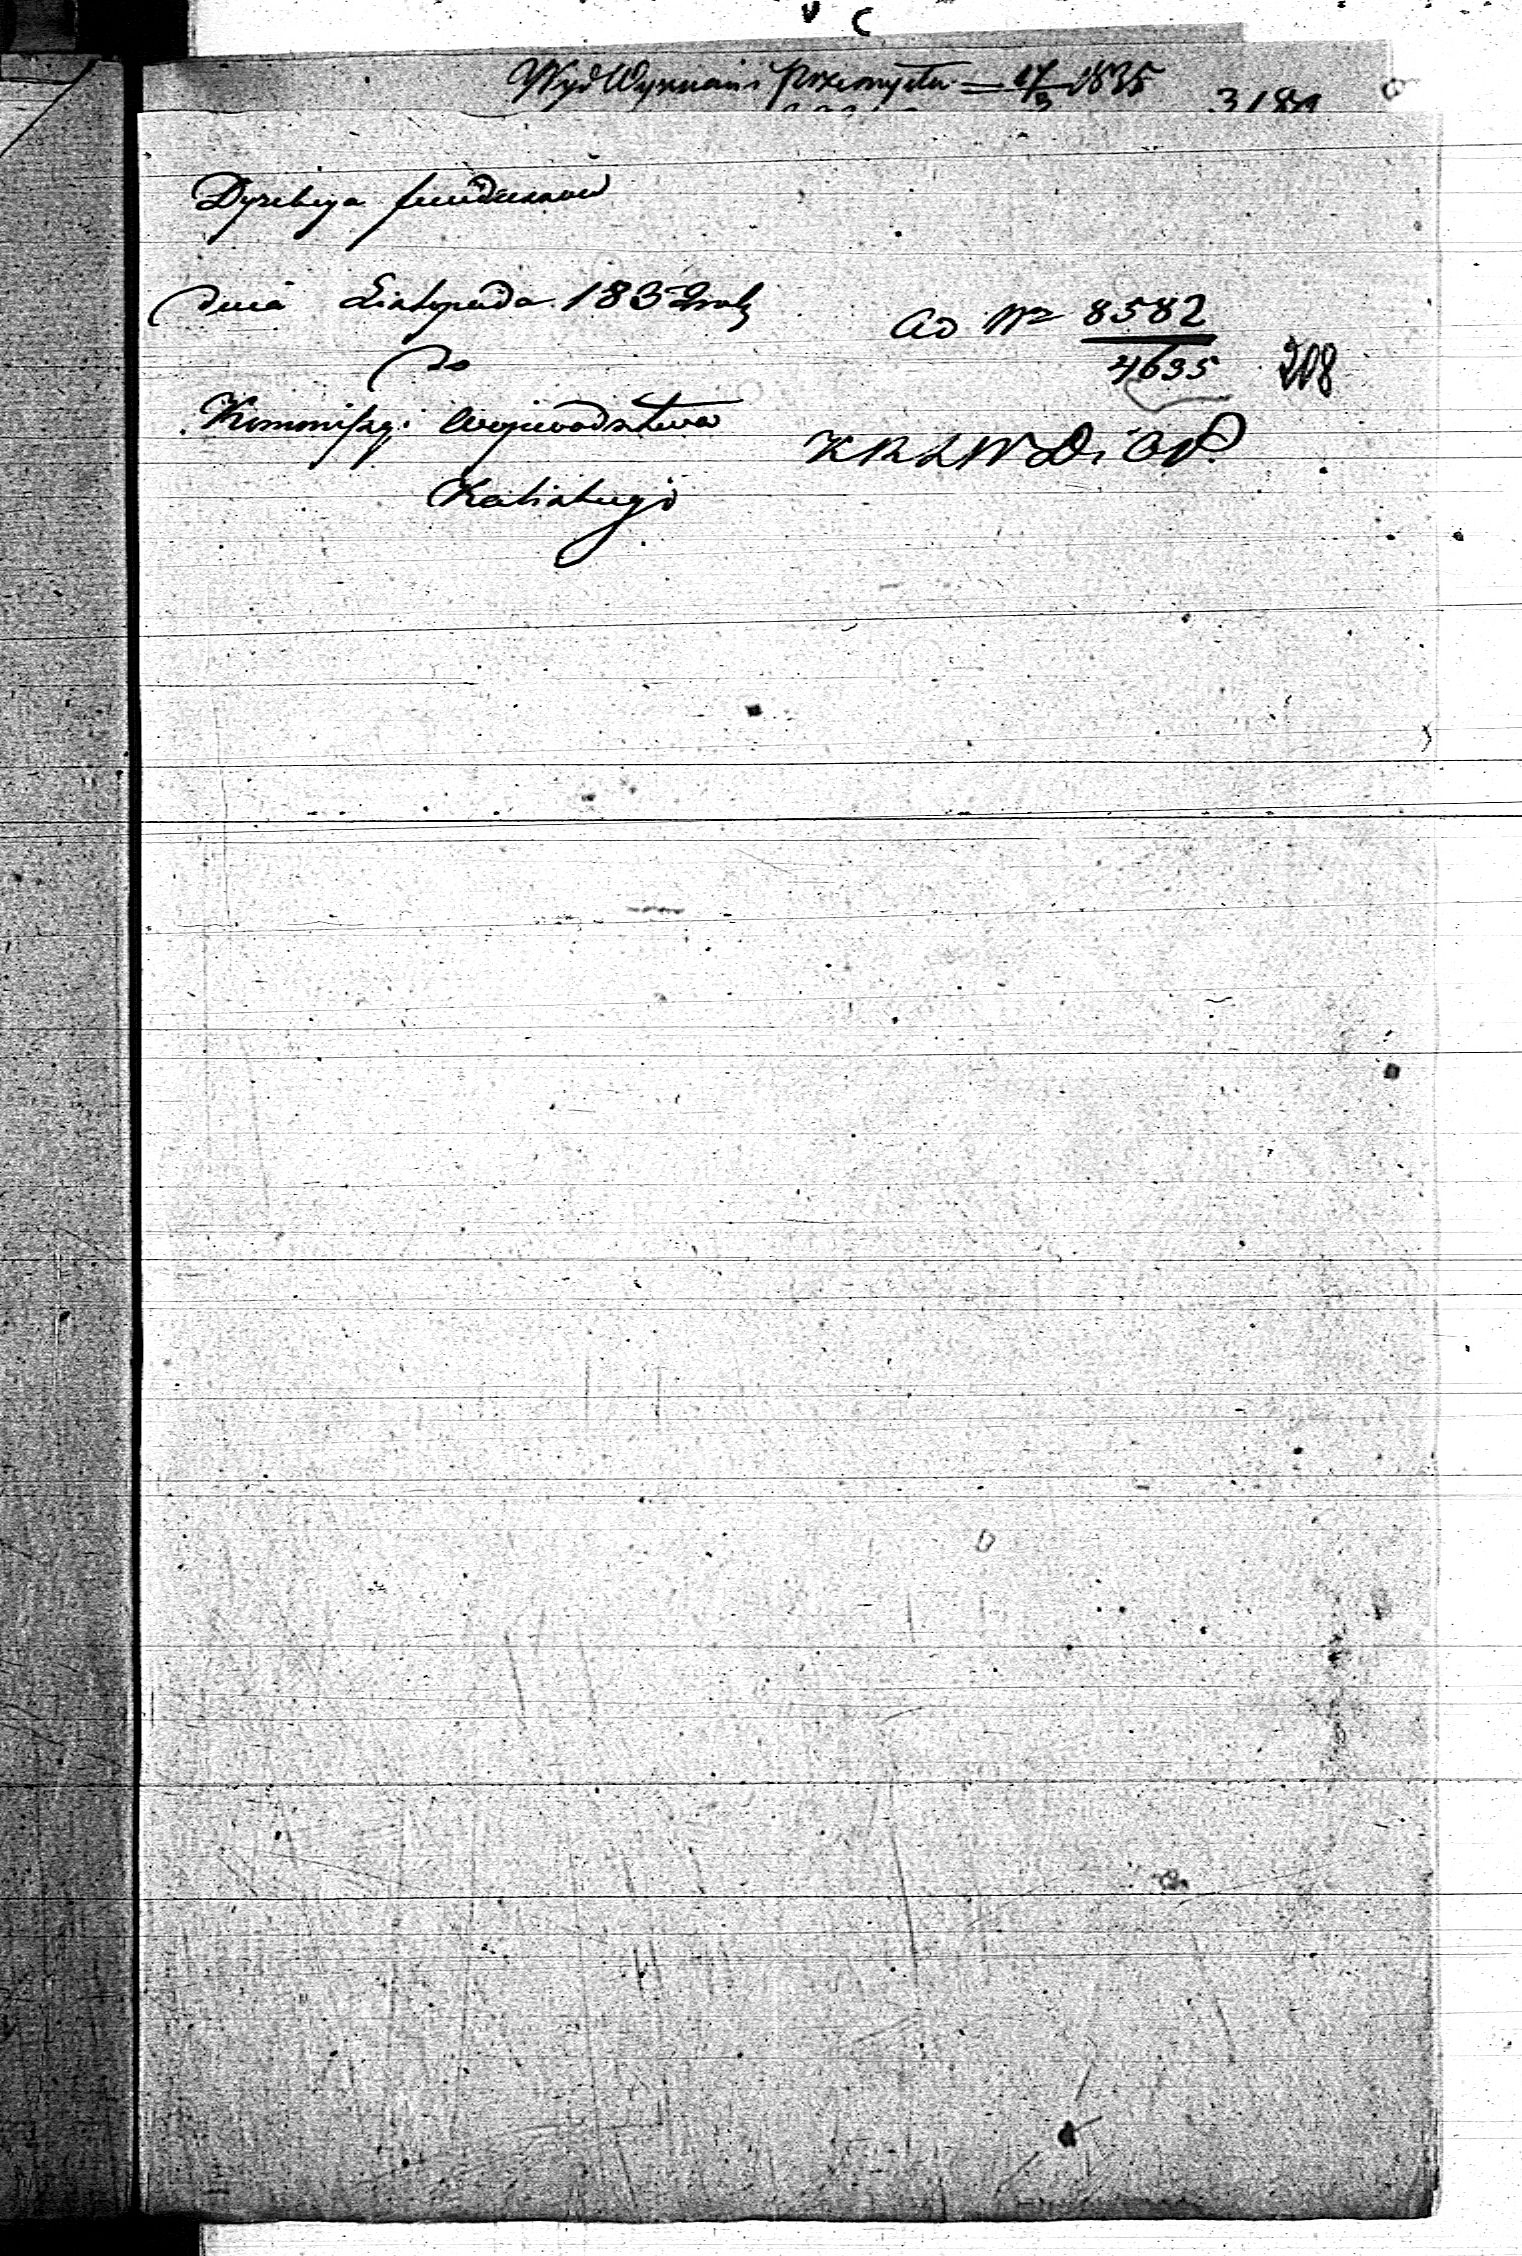 Wyd Wyznań i Przemysłu = 17/3 1835 3184
Dyrekcya funduszow
dnia Listopada 1832 roku
do
Kommissyi Wojewodztwa
Kaliskiego
Ad No 8582
4635
208
K R S W D i O P.